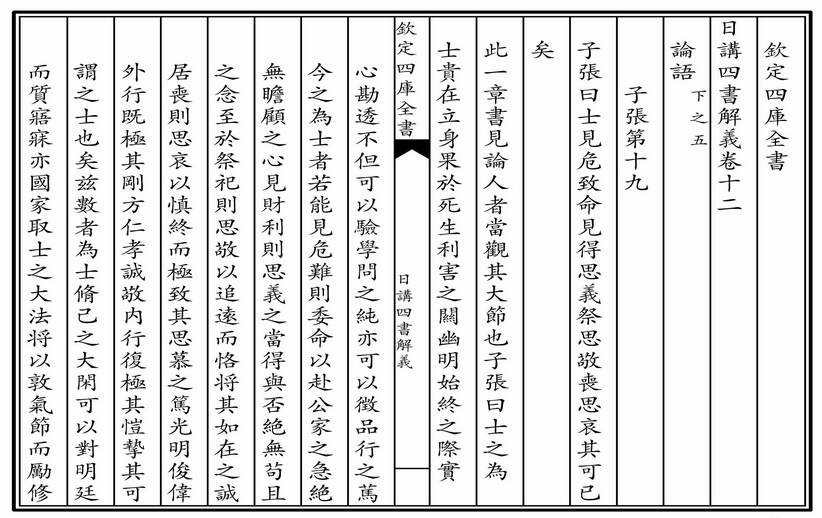 欽定四庫全書
日講四書解義卷十二
論語下之五
子張第十九
子張曰士見危致命見得思義祭思敬喪思哀其可已
矣
此一章書見論人者當觀其大節也子張曰士之為
士貴在立身果於死生利害之關幽明始終之際實
欽定四庫全書
日講四書解義
心勘透不但可以驗學問之純亦可以徵品行之篤
今之為士者若能見危難則委命以赴公家之急絕
無瞻顧之心見財利則思義之當得與否絕無苟且
之念至於祭祀則思敬以追遠而恪將其如在之誠
居喪則思哀以慎終而極致其思慕之篤光明俊偉
外行既極其剛方仁孝誠敬内行復極其愷摯其可
謂之士也矣茲數者為士脩己之大閑可以對明廷
而質寤寐亦國家取士之大法将以敦氣節而勵修